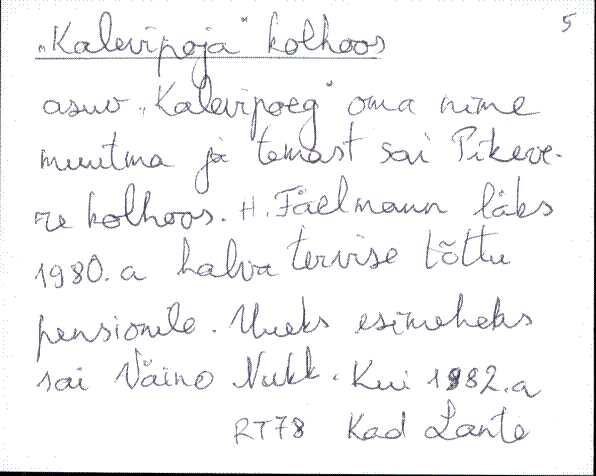 5
„Kalevipoja" kolhoos
asuv „Kalevipoeg" oma nime
muutma ja temast sai Pikeve-
re kolhoos. H. Fäelmann läks
1980.a halva tervise tõttu
pensionile. Uueks esimeheks
sai Väino Nukk. Kui 1982.a
RT78 Kad Lante